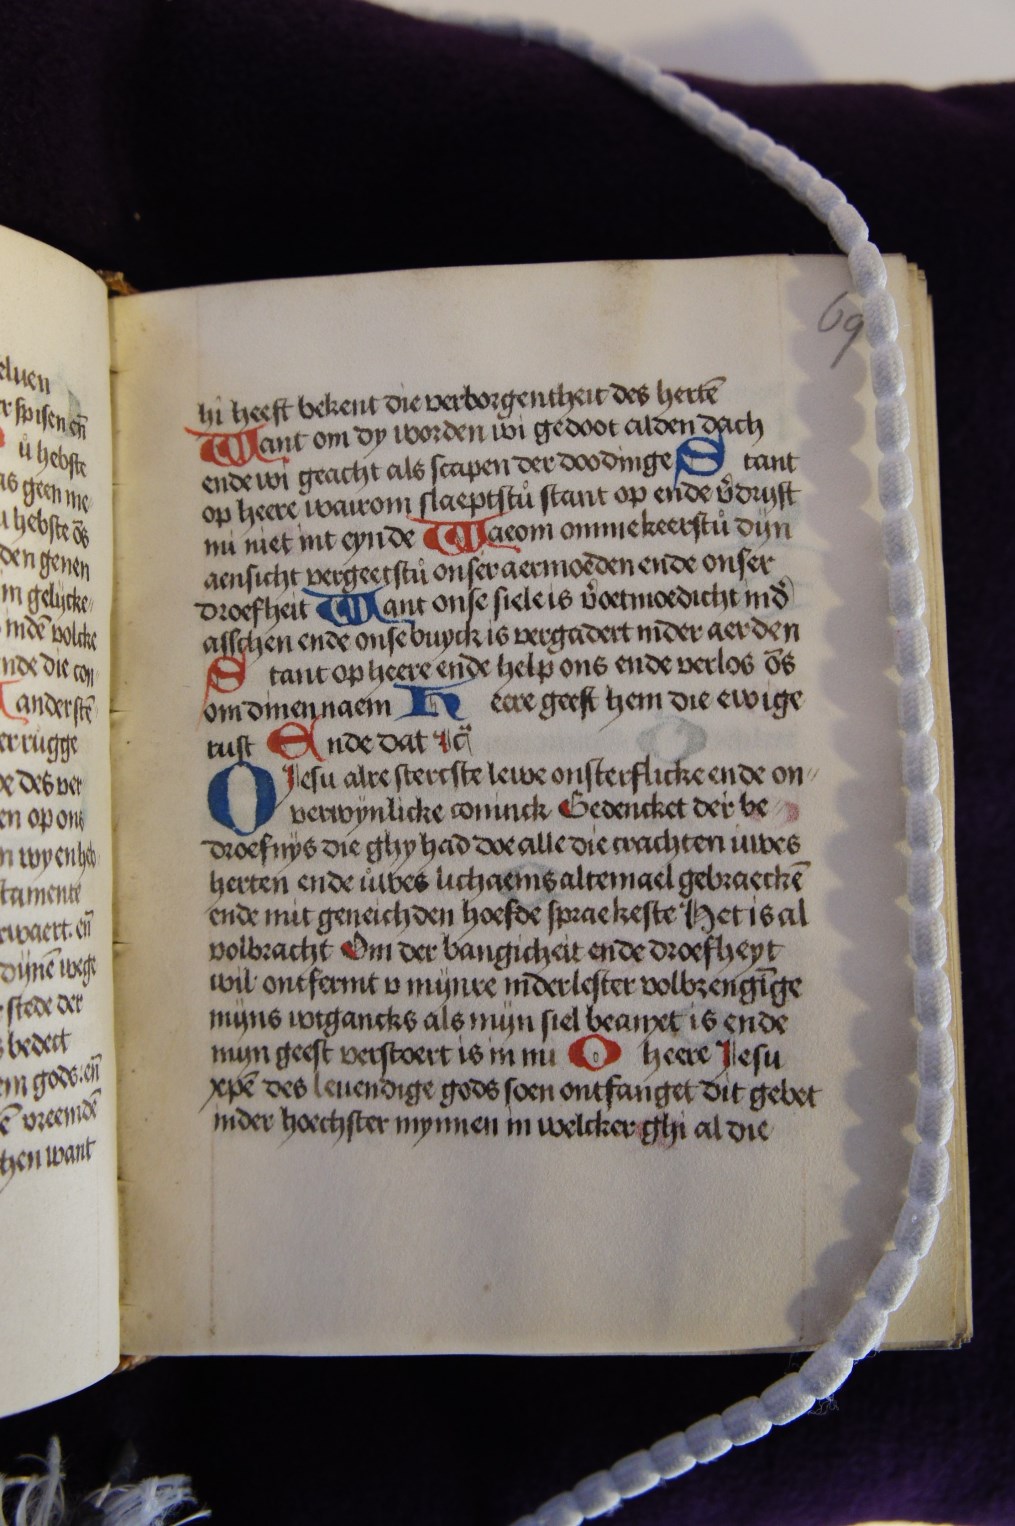 eluen
r spisen en̄
ů hebste
as geen me
u hebste ōs
den genen
m gelijcke
mdē volcke
nde die con
anderstē
er rugge
e des ver
en op ons
n wy en heb
stamente
rwaert. en̄
dijnē wege
stede der
s bedect
em gods. en̄
ē vreemdē
chen want
69
hi heeft bekent die verborgentheit des hertē
Want om dy worden wi gedoot alden dach
ende wi geacht als scapen der doodinge Stant
op heere wairom slaeptstu̇ stant op ende v̾drijft
mi niet int eynde Waeom ommekeerstu̇ dijn
aensicht vergeetstu̇ onser aermoeden ende onser
droefheit Want onse siele is v̾oetmoedicht ind̾
asschen ende onse buyck is vergadert inder aerden
Stant op heere ende help ons ende verlos ōs
om dinen naem Heere geeft hem die ewige
rust Ende dat
O Jesu alre stercste lewe onsterflicke ende on″
verwynlicke coninck Gedencket der be″
droefnijs die ghy had doe alle die crachten uwes
herten ende u̇wes lichaems altemael gebraeckē
ende mit geneichden hoefde spraekeste Het is al
volbracht Om der bangicheit ende droefheyt
wil ontfermt v mijnre inder lester volbrengīge
mijns wtgancks als mijn siel beanxt is ende
mijn geest verstoert is in mi O heere Jesu
xp̄e des leuendige gods soen ontfanget dit gebet
inder hoechster mynnen in welcker ghi al die